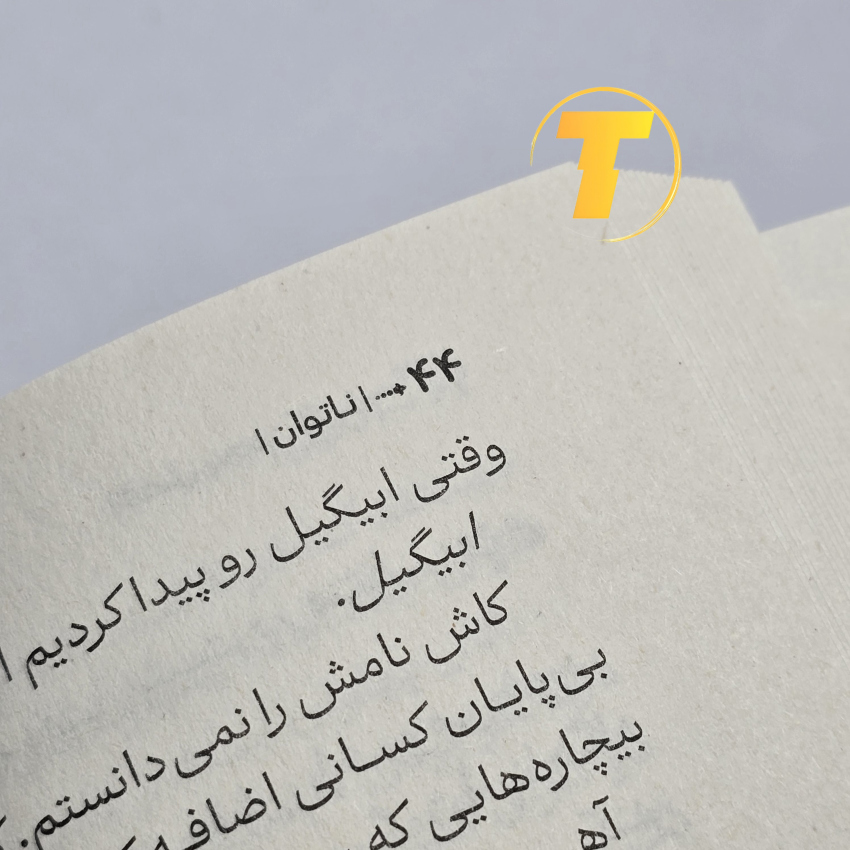 T
۴۴ | ناتوان |
وقتی ابیگیل رو پیدا کردیم
ابیگیل.
کاش نامش را نمی‌دانستم.
بی‌پایان کسانی اضافه
بیچاره‌هایی که